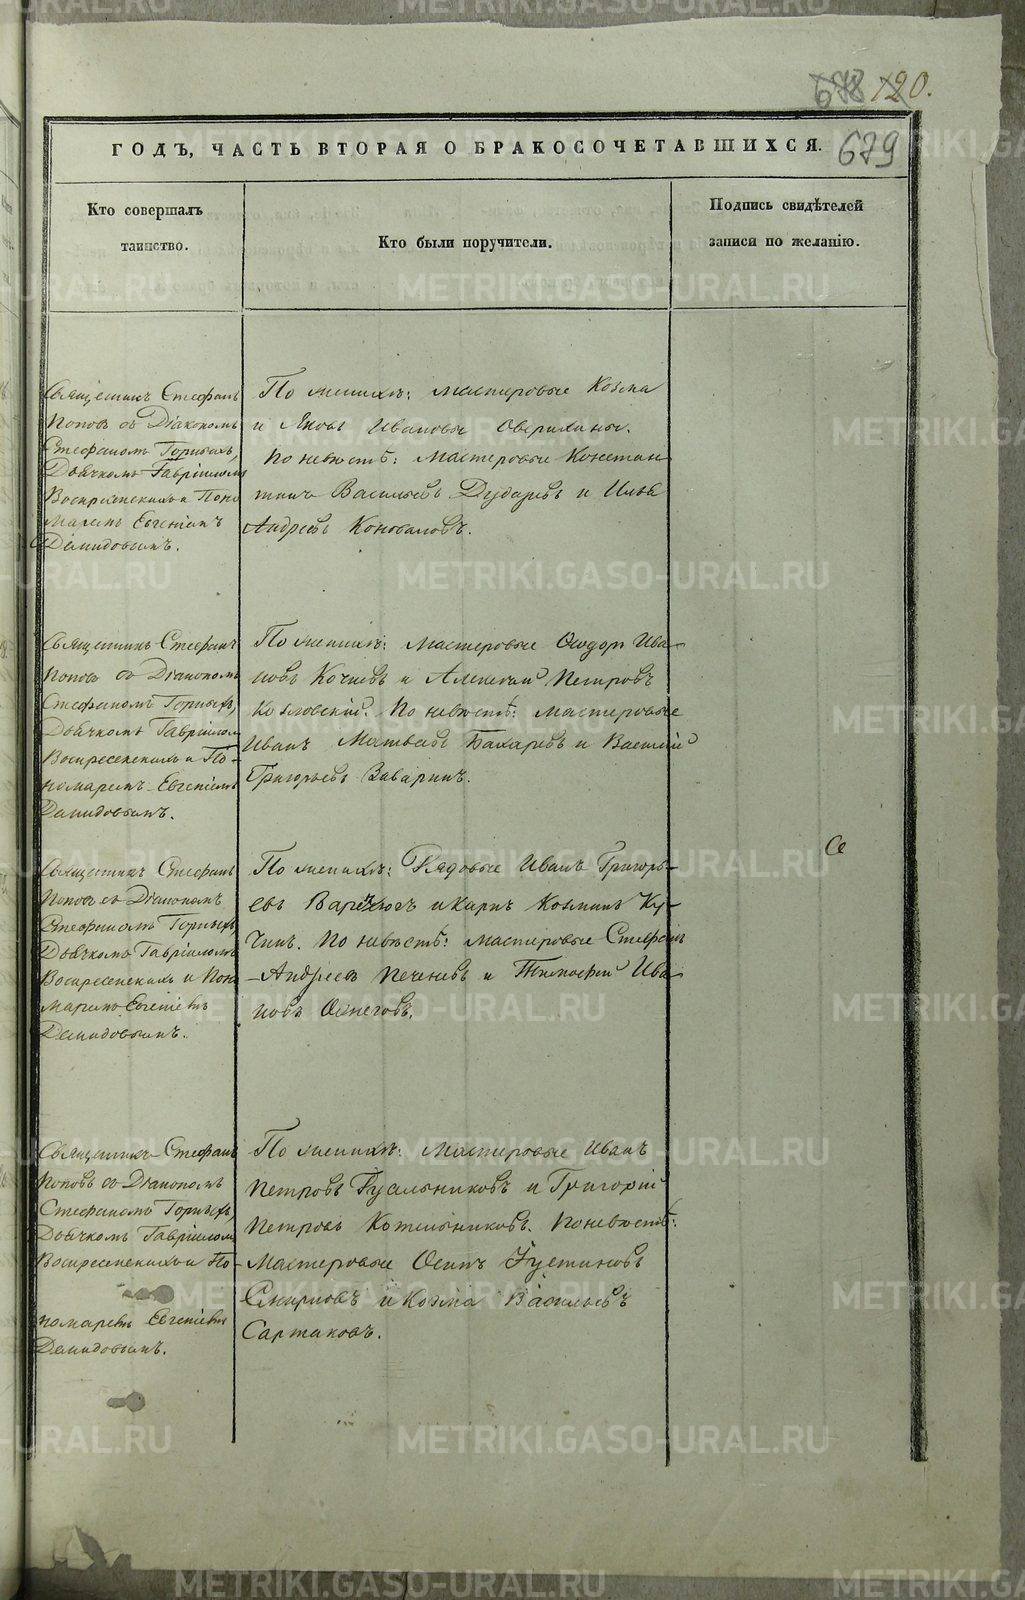 678 120.
ГОДЪ, ЧАСТЬ ВТОРАЯ О БРАКОСОЧЕТАВШИХСЯ. 679
Кто совершалъ
таинство.
Кто были поручители.
Подпись свидѣтелей
записи по желанію.
Священникъ Стефанъ
Поповъ съ Діакономъ
Стефаномъ Горныхъ,
Дьячкомъ Гавріиломъ
Воскресенскимъ и Поно
маремъ Евгеніемъ
Демидовымъ.
По женихѣ: мастеровые Козма
и Яковъ Ивановы Оверихины.
По невѣстѣ: Мастеровые Констан
тинъ Васильевъ Дударевъ и Илья
Андреевъ Коноваловъ.
Священникъ Стефанъ
Поповъ съ Діакономъ
Стефаномъ Горныхъ,
Дьячкомъ Гавріиломъ
Воскресенскимъ и По-
номаремъ Евгеніемъ
Демидовымъ.
По женихѣ: мастеровые Ѳедоръ Ива
новъ Кочневъ и Алексѣй Петровъ
Козловскій. По невѣстѣ: мастеровые
Иванъ Матвѣевъ Бахаревъ и Василій
Григорьевъ Заваринъ.
Священникъ Стефанъ
Поповъ съ Діакономъ
Стефаномъ Горныхъ,
Дьячкомъ Гавріиломъ
Воскресенскимъ и Поно
маремъ Евгеніемъ
Демидовымъ.
По женихѣ: Рядовые Иванъ Григорь-
евъ и Карпъ Козминъ Ку-
Чинъ. По невѣстѣ: мастеровые Стефанъ
Андреевъ Печеневъ и Тимофей Ива
новъ
Се
Священникъ Стефанъ
Поповъ съ Діакономъ
Стефаномъ Горныхъ,
Дьячкомъ Гавріиломъ
Воскресенскимъ и По-
номаремъ Евгеніемъ
Демидовымъ.
По женихѣ: Мастеровые Иванъ
Петровъ Гусельниковъ и Григорій
Петровъ Котельниковъ. По невѣстѣ:
Мастеровые Осипъ Густиновъ
Смирновъ и Козма Васильевъ
Сартаковъ.
METRIKI.GASO-URAL.RU